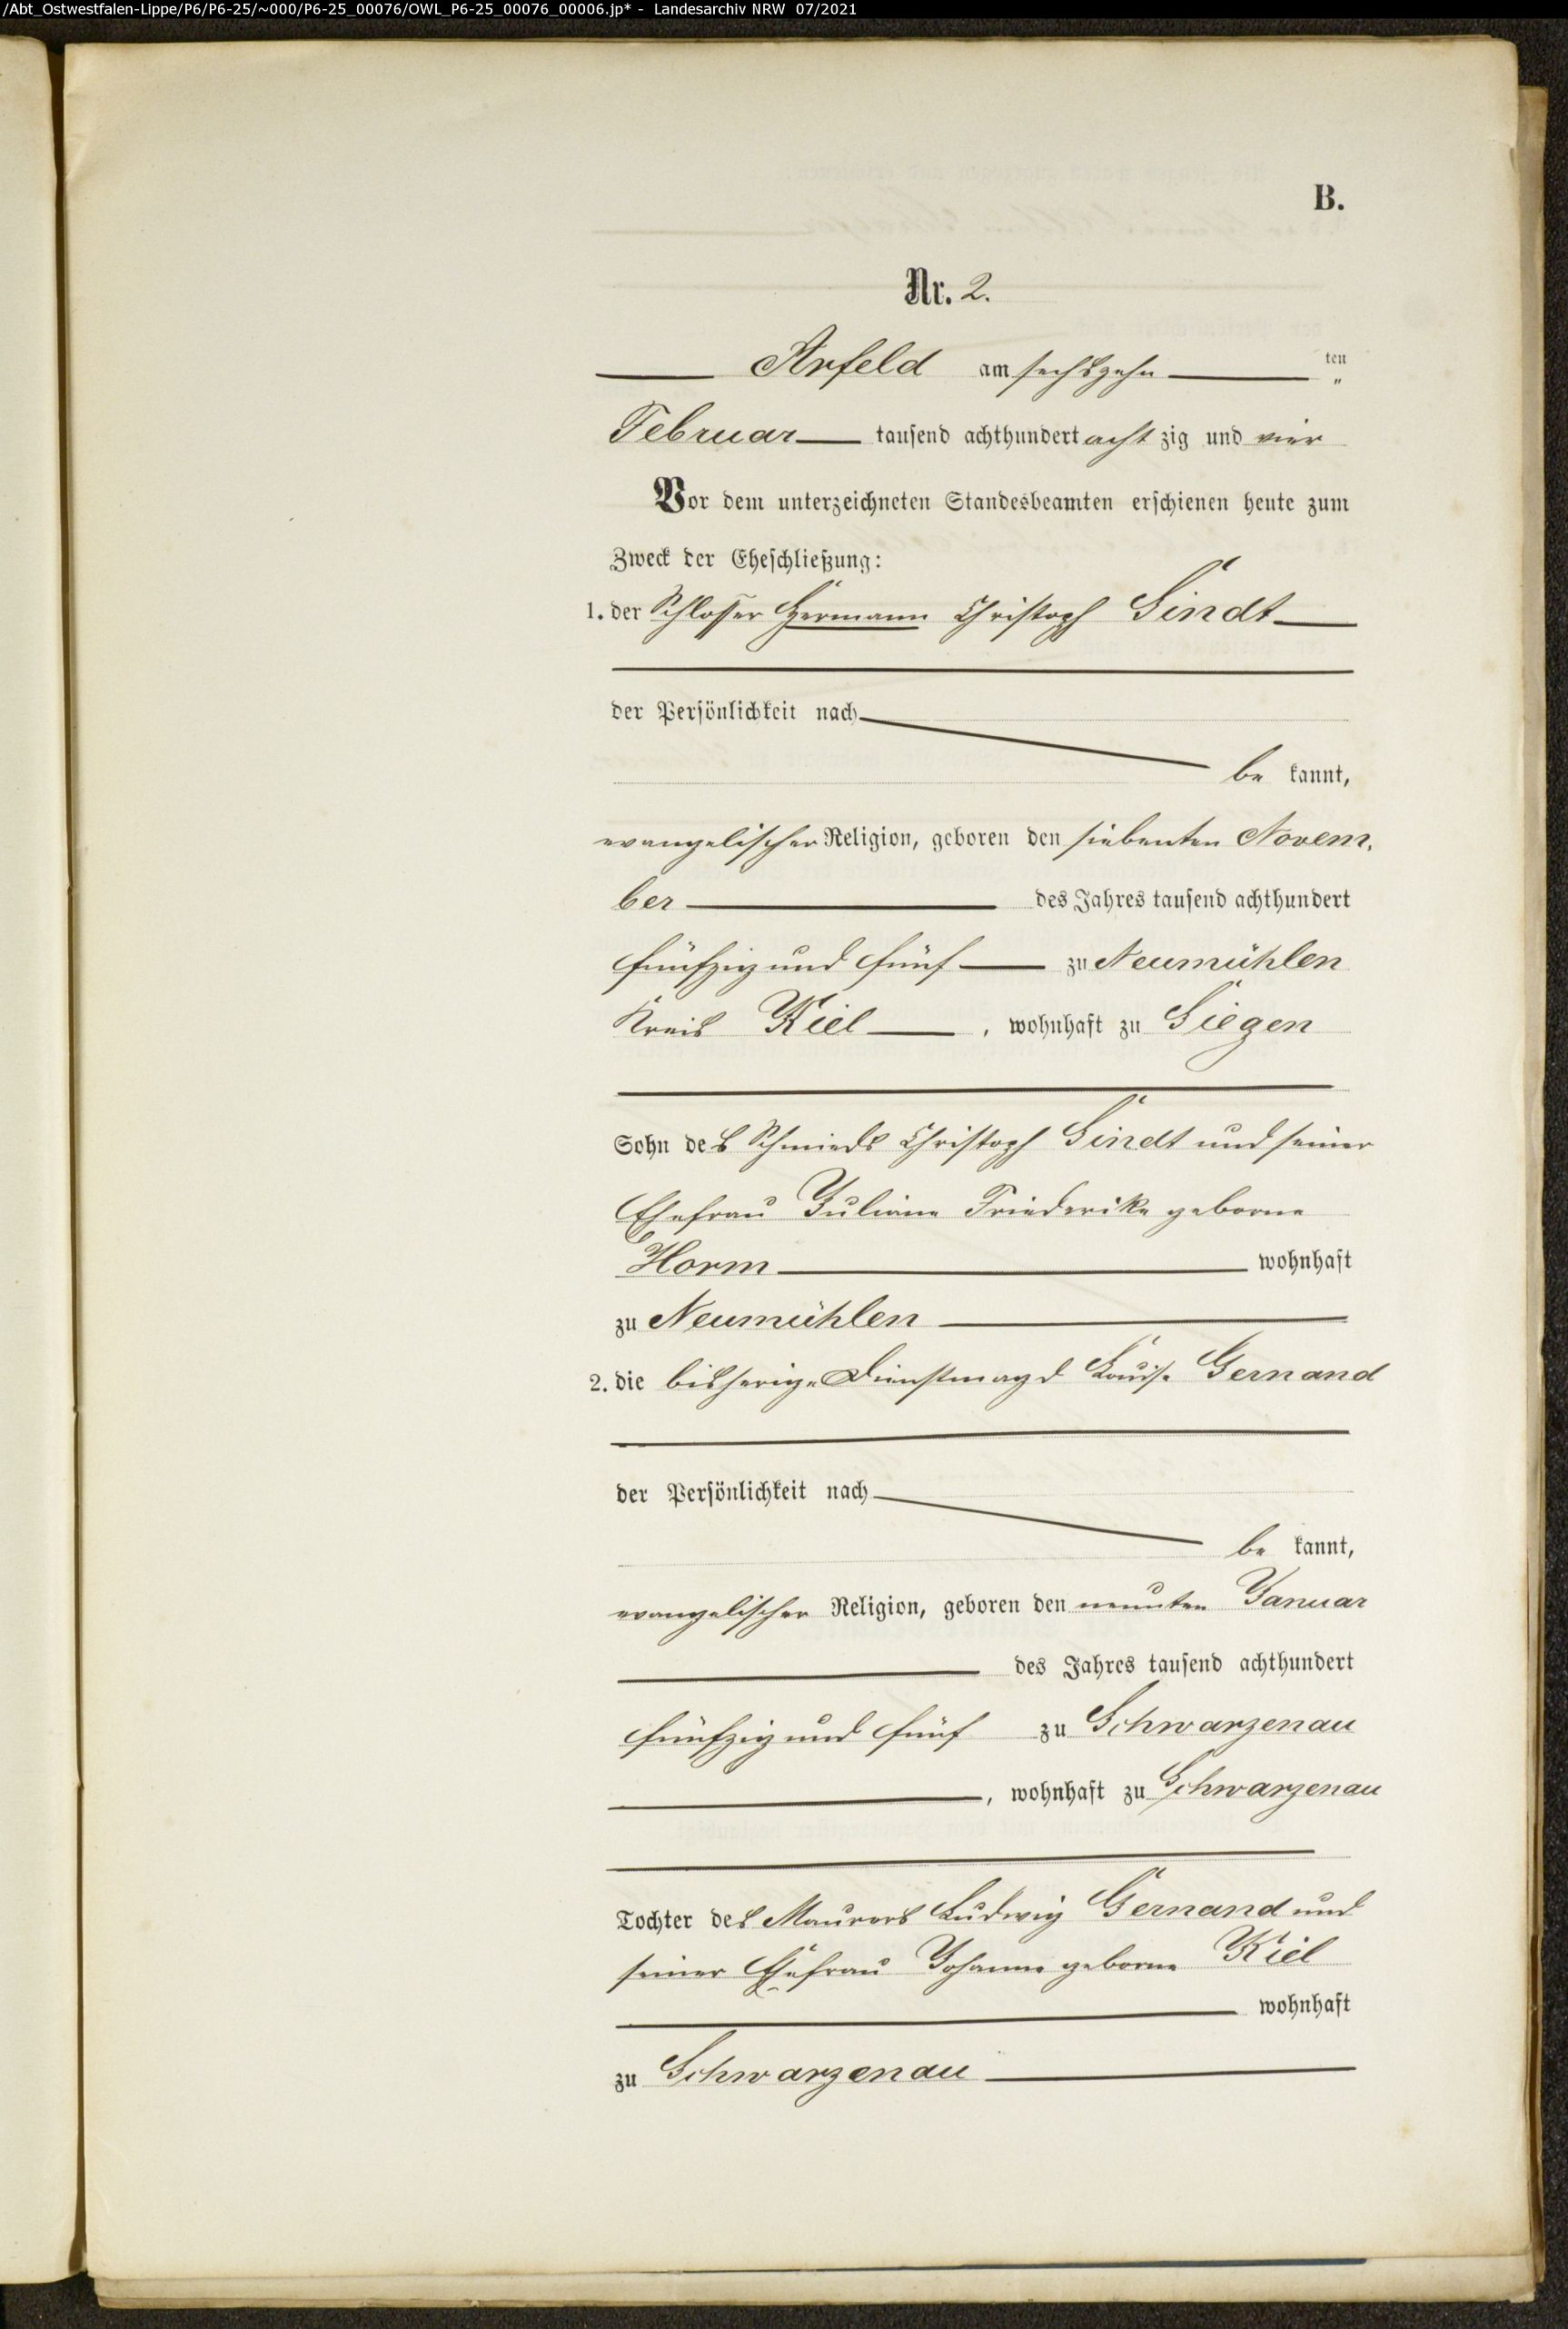 /Abt_Ostwestfalen-Lippe/P6/P6-25/~000/P6-25_00076/OWL_P6-25_00076_00006.jp* - Landesarchiv NRW 07/2021
B.
Nr. 2.
Arfeld am sechszehn ten
Februar tausend achthundert acht zig und vier
Vor dem unterzeichneten Standesbeamten erschienen heute zum
Zweck der Eheschließung:
1. der Schlosser Hermann Christoph Sindt
der Persönlichkeit nach
be kannt,
evangelischer Religion, geboren den siebenten Novem-
ber des Jahres tausend achthundert
fünfzig und fünf zu Neumühlen
Kreis Kiel, wohnhaft zu Siegen
Sohn des Schmieds Christoph Sindt und seiner
Ehefrau Juliane Friederike geborne
Horm wohnhaft
zu Neumühlen
2. die bisherige Dienstmagd Louise Gernand
der Persönlichkeit nach
be kannt,
evangelischer Religion, geboren den neunten Januar
des Jahres tausend achthundert
fünfzig und fünf zu Schwarzenau
, wohnhaft zu Schwarzenau
Tochter des Maurers Ludwig Gernand und
seiner Ehefrau Johanne geborne Kiel
wohnhaft
zu Schwarzenau